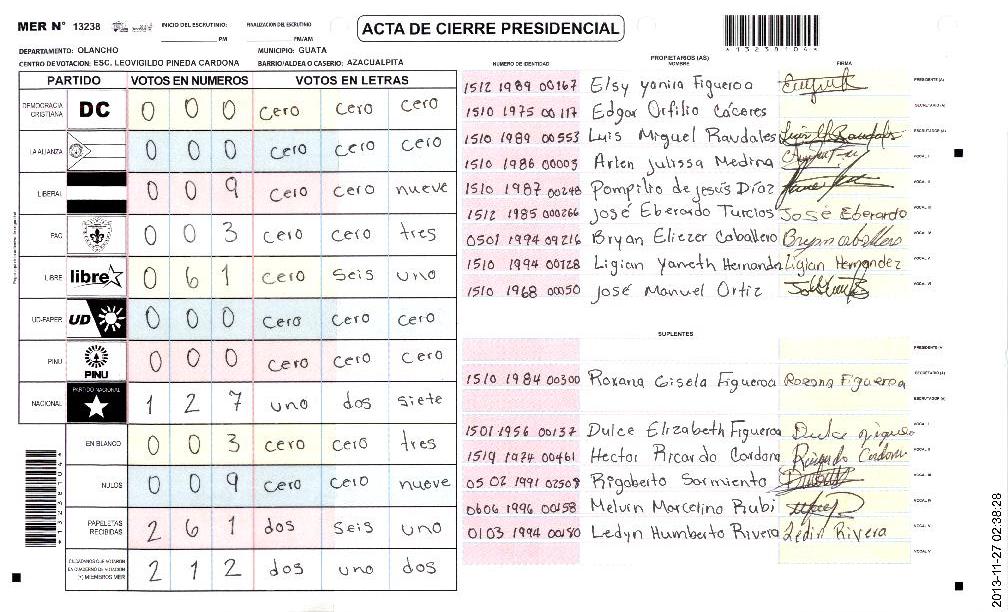 MER N° 13238
INICIO DEL ESCRUTINIO: PM
FINALIZACION DEL ESCRUTINIO PM/AM
ACTA DE CIERRE PRESIDENCIAL
*13238104*
DEPARTAMENTO: OLANCHO MUNICIPIO: GUATA
CENTRO DE VOTACION: ESC. LEOVIGILDO PINEDA CARDONA BARRIO/ALDEA O CASERIO: AZACUALPITA
PARTIDO VOTOS EN NUMEROS VOTOS EN LETRAS
DEMOCRACIA CRISTIANA DC 0 0 0 cero cero cero
LA ALIANZA 0 0 0 cero cero cero
LIBERAL 0 0 9 cero cero nueve
PAC 0 0 3 cero cero tres
LIBRE libre 0 6 1 cero seis uno
UD-FAPER UD 0 0 0 cero cero cero
PINU PINU 0 0 0 cero cero cero
NACIONAL PARTIDO NACIONAL 1 2 7 uno dos siete
EN BLANCO 0 0 3 cero cero tres
NULOS 0 0 9 cero cero nueve
PAPELETAS RECIBIDAS 2 6 1 dos seis uno
CIUDADANOS QUE VOTARON EN CUADERNO DE VOTACION (Y) MIEMBROS MER 2 1 2 dos uno dos
PROPIETARIOS (AS)
NUMERO DE IDENTIDAD NOMBRE FIRMA
1512 1989 00167 Elsy yanira Figueroa PRESIDENTE (A)
1510 1975 00117 Edgar Orfilio Cáceres SECRETARIO (A)
1510 1989 00553 Luis Miguel Raudales Luis M Raudales ESCRUTADOR (A)
1510 1986 00005 Arlen Julissa Medina VOCAL I
1510 1987 00248 Pompilio de jesús Díaz VOCAL II
1512 1985 000266 José Eberardo Turcios José Eberardo VOCAL III
0501 1994 09216 Bryan Eliezer Caballero Bryan caballero VOCAL IV
1510 1994 00128 Ligian Yaneth Hernande Ligian Hernandez VOCAL V
1510 1968 00050 José Manuel Ortiz VOCAL VI
SUPLENTES
PRESIDENTE (A)
1510 1984 00300 Roxana Gisela Figueroa Roxana Figueroa SECRETARIO (A)
ESCRUTADOR (A)
1501 1956 00137 Dulce Elizabeth Figueroa Dulce VOCAL I
1519 1974 00461 Hector Ricardo Cardona Ricardo Cardona VOCAL II
0502 1991 02508 Rigoberto Sarmiento VOCAL III
0606 1996 00458 Melvin Marcelino Rubi VOCAL IV
0103 1994 00180 Ledyn Humberto Rivera Ledin Rivera VOCAL V
VOCAL VI
2013-11-27 02:38:28